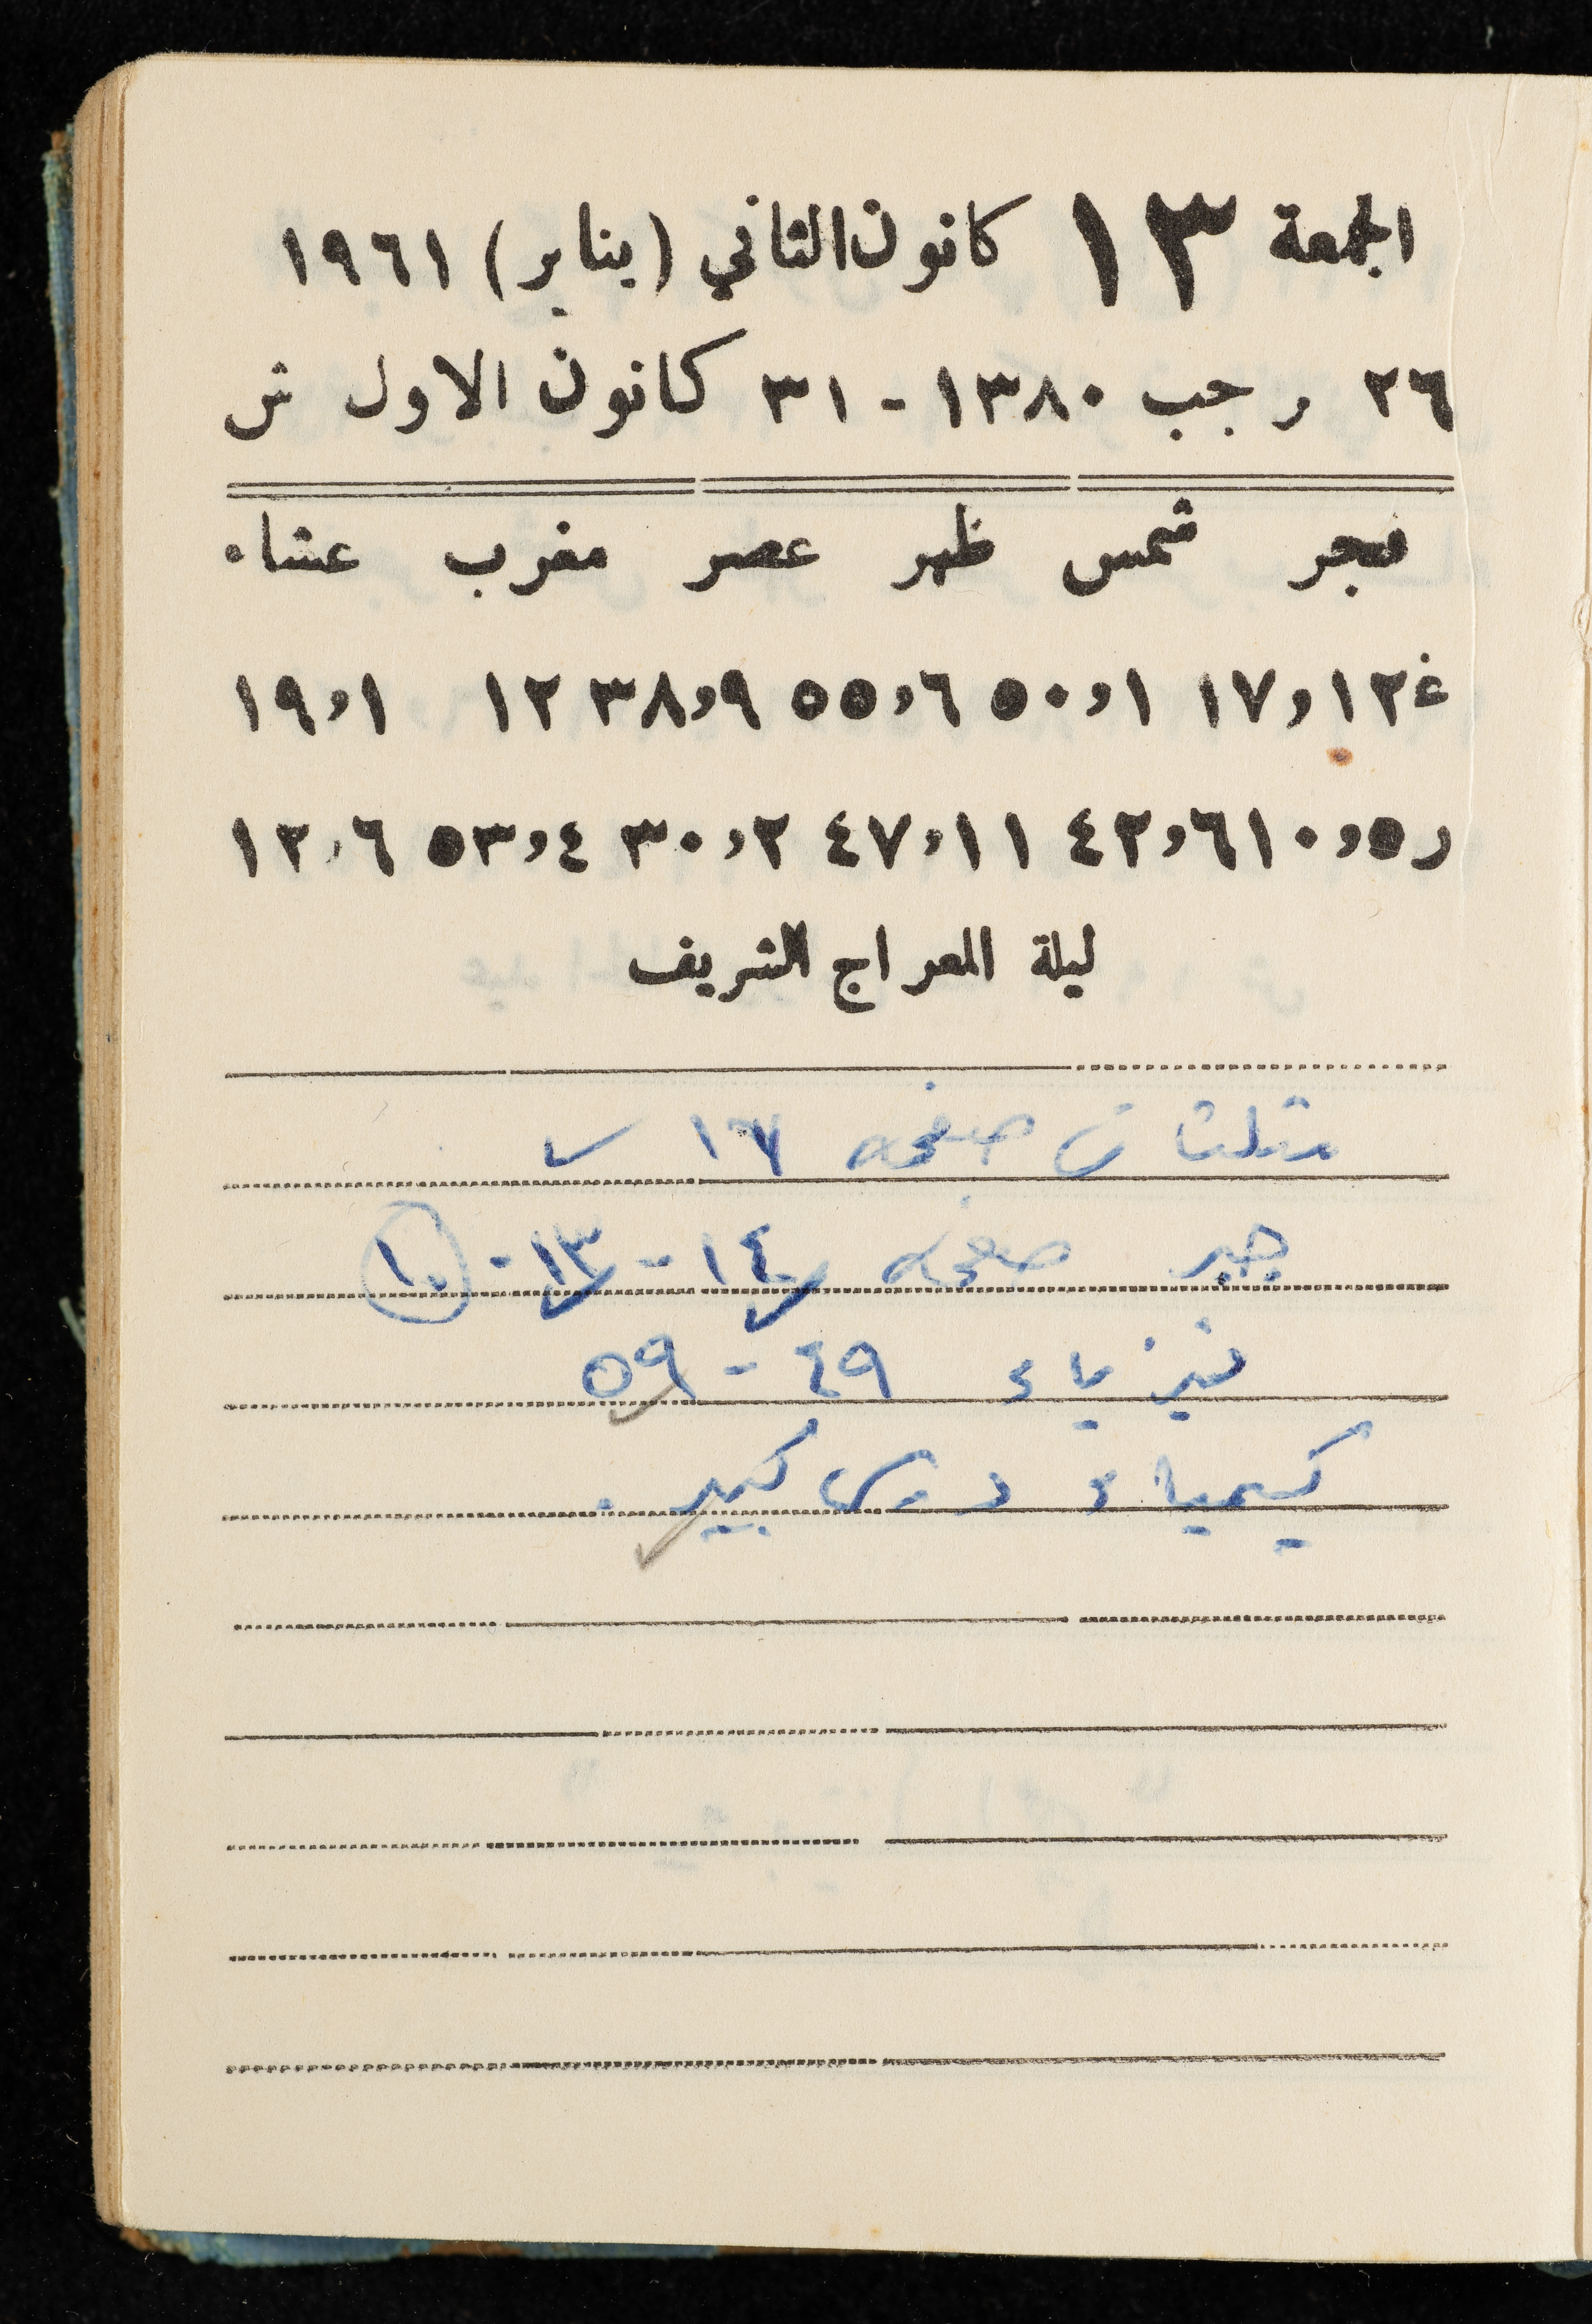 الجمعة ١٣ كانون الثاني (يناير) ١٩٦١
٢٦ رجب ١٣٨٠ - ٣١ كانون الاول ش
فجر شمس ظهر عصر مغرب عشاء
غ ١٢,١٧ ١,٥٠ ٦,٥٥ ٩,٣٨ ١٢ ١,١٩
ر ٥,١٠ ٦,٤٢ ١١,٤٧ ٢,٣٠ ٤,٥٣ ٦,١٢
ليلة المعراج الشريف
مثلثات صفحه ١٧
جبر صفحه ١٤ - ١٣ - ١٠
فيزياء ٤٩ - ٥٩
كيمياء درس كبير .